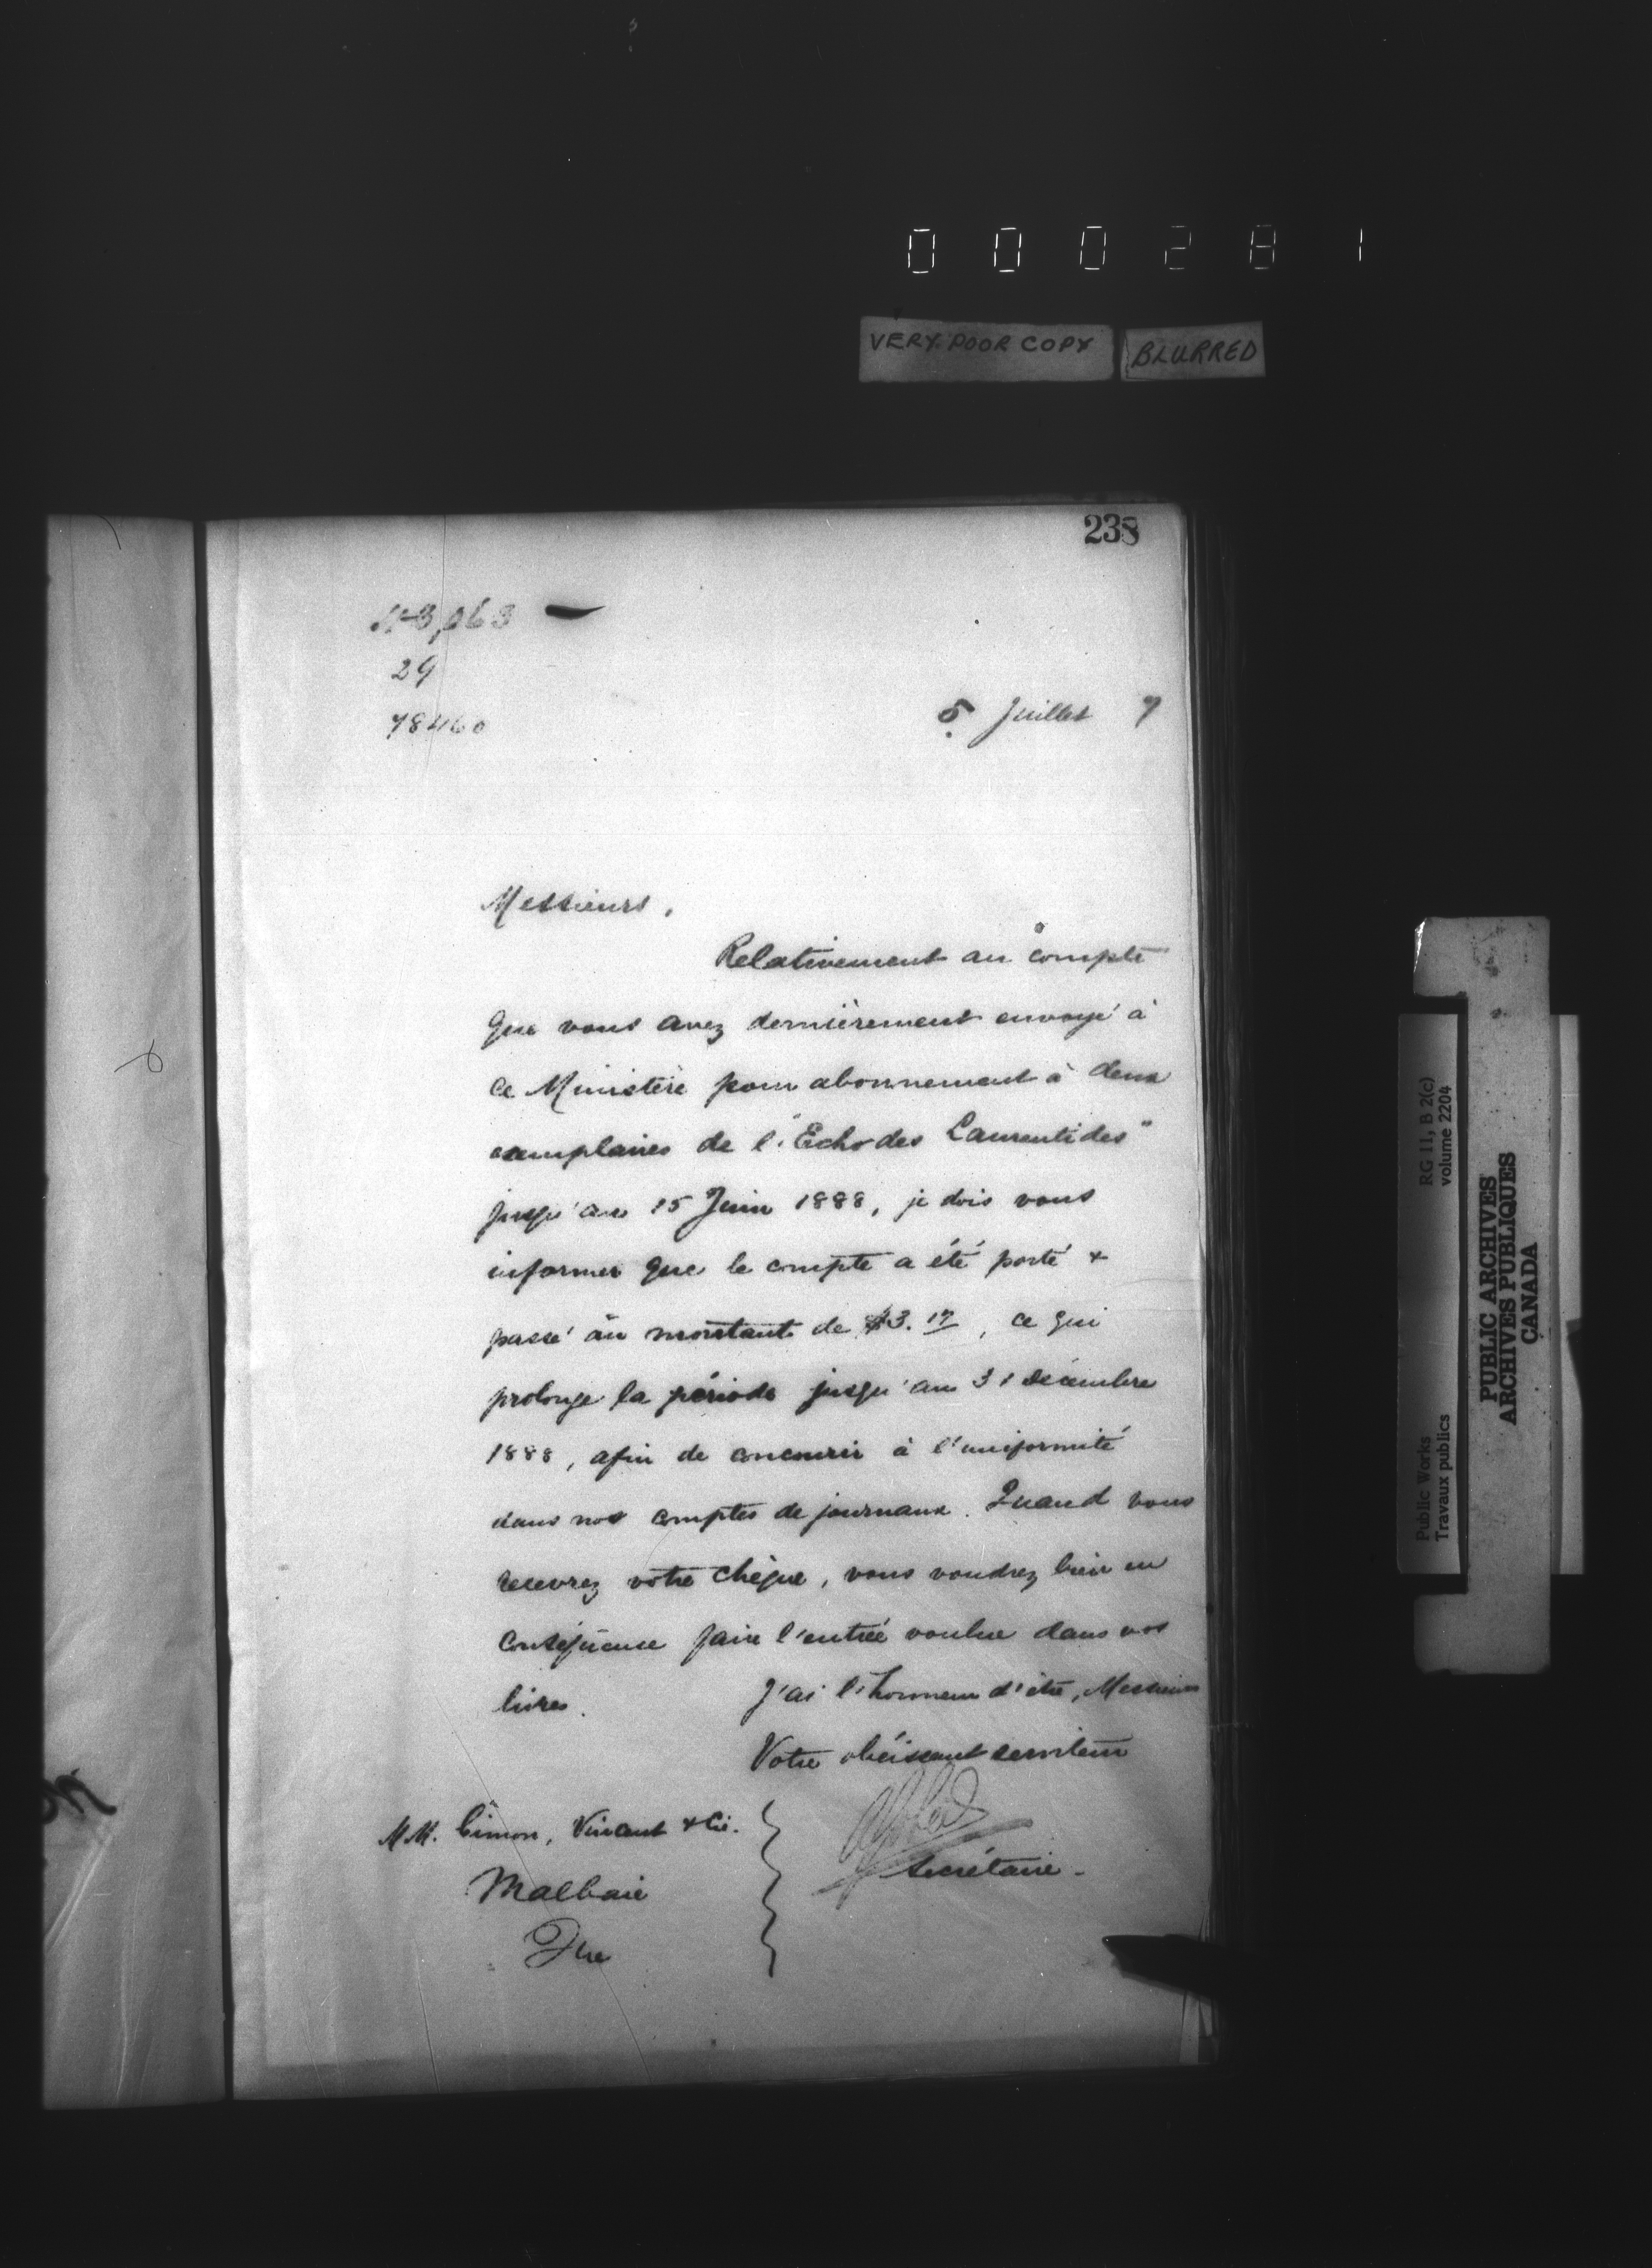 000281
VERY POOR COPY BLURRED
238
29
78460
5 Juillet 7
Messieurs,
Relativement au compte
que vous avez dernièrement envoyé à
ce Ministère pour abonnement à deux
exemplaires de l'"Echo des Laurentides"
jusqu'au 15 Juin 1888, je dois vous
informer que le compte a été porté &
passé au montant de $3.17, ce qui
prolonge la période jusqu'au 31 Décembre
1888, afin de concourir à l'uniformité
dans nos comptes de journaux. Quand vous
recevrez votre chèque, vous voudrez bien en
conséquence faire l'entrée voulue dans vos
livres. J'ai l'honneur d'être, Messieurs
Votre obéissant serviteur
MM. Cimon, Vincent & Cie.
Secrétaire.
Malbaie
Que
Public Works RG 11, B 2(c)
Travaux publics volume 2204
PUBLIC ARCHIVES
ARCHIVES PUBLIQUES
CANADA